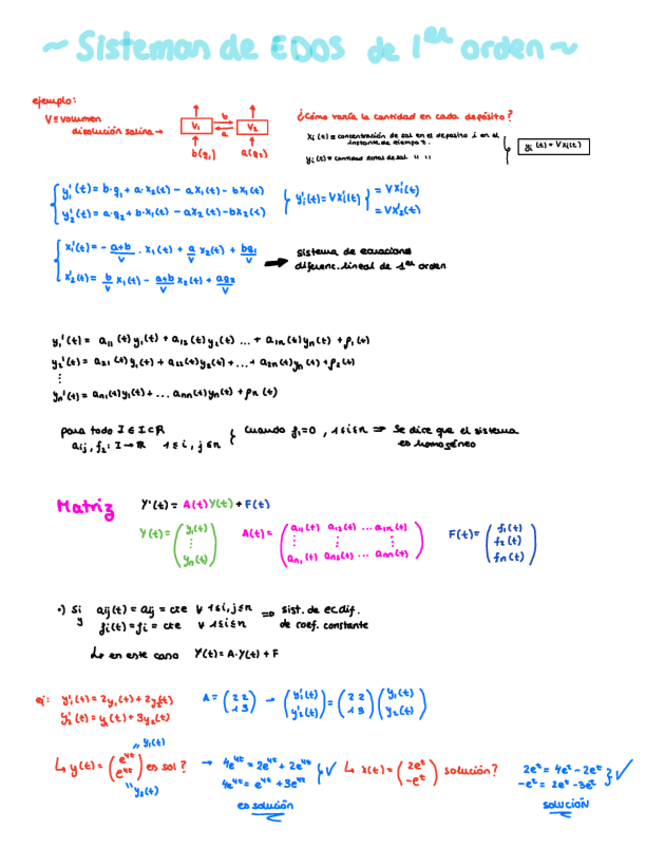 ~ Sistemas de EDOS de 1er orden ~
ejemplo:
V ≡ volumen
disolución salina →
V₁ b a V₂
b(q₁) a(q₂)
¿Cómo varía la cantidad en cada depósito?
xi(t) ≡ concentración de sal en el depósito i en el
instante de tiempo t.
yi(t) ≡ cantidad total de sal " "
yi(t) = V xi(t)
y₁'(t) = b·q₁ + a·x₂(t) − a x₁(t) − b x₁(t)
y₂'(t) = a·q₂ + b·x₁(t) − a x₂(t) − b x₂(t)
yi'(t) = V xi'(t) } = V x₁'(t)
= V x₂'(t)
x₁'(t) = − (a+b)/V · x₁(t) + a/V x₂(t) + bq₁/V
x₂'(t) = b/V x₁(t) − (a+b)/V x₂(t) + aq₂/V
→ sistema de ecuaciones
diferenc. lineal de 1er orden
y₁'(t) = a₁₁(t)y₁(t) + a₁₂(t)y₂(t) ... + a₁n(t)yn(t) + f₁(t)
y₂'(t) = a₂₁(t)y₁(t) + a₂₂(t)y₂(t) + ... + a₂n(t)yn(t) + f₂(t)
⋮
yn'(t) = an₁(t)y₁(t) + ... ann(t)yn(t) + fn(t)
para todo I ∈ I ⊂ R
aij, f₂: I → R 1 ≤ i, j ≤ n } cuando fi = 0, 1 ≤ i ≤ n ⇒ Se dice que el sistema
es homogéneo
Matriz Y'(t) = A(t)Y(t) + F(t)
Y(t) = (y₁(t) ⋮ yn(t)) A(t) = (a₁₁(t) a₁₂(t) ... a₁n(t) ⋮ ⋮ ⋮ an₁(t) an₂(t) ... ann(t)) F(t) = (f₁(t) f₂(t) fn(t))
•) Si aij(t) = aij = cte ∀ 1≤i,j≤n ⇒ sist. de ec. dif.
y fi(t) = fi = cte ∀ 1≤i≤n de coef. constante
↳ en este caso Y'(t) = A·Y(t) + F
ej: y₁'(t) = 2y₁(t) + 2y₂(t)
y₂'(t) = y₁(t) + 3y₂(t)
A = (2 2 1 3) → (y₁'(t) y₂'(t)) = (2 2 1 3)(y₁(t) y₂(t))
" y₁(t)
↳ y(t) = (e⁴ᵗ e⁴ᵗ) es sol?
" y₂(t)
→ 4e⁴ᵗ = 2e⁴ᵗ + 2e⁴ᵗ
4e⁴ᵗ = e⁴ᵗ + 3e⁴ᵗ } √
es solución
↳ x(t) = (2eᵗ −eᵗ) solución?
2eᵗ = 4eᵗ − 2eᵗ
−eᵗ = 2eᵗ − 3eᵗ } √
solución